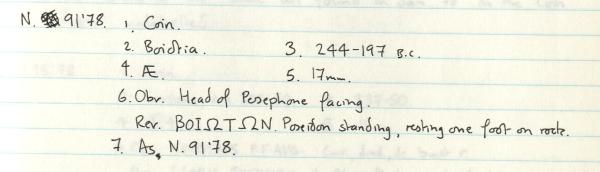 N. 91'78. 1. Coin.
2. Boiotia. 3. 244-197 B.C.
4. Æ. 5. 17mm.
6. Obv. Head of Persephone facing.
Rev. BOIΩTΩN. Poseidon standing, resting one foot on rock.
7. As, N. 91'78.